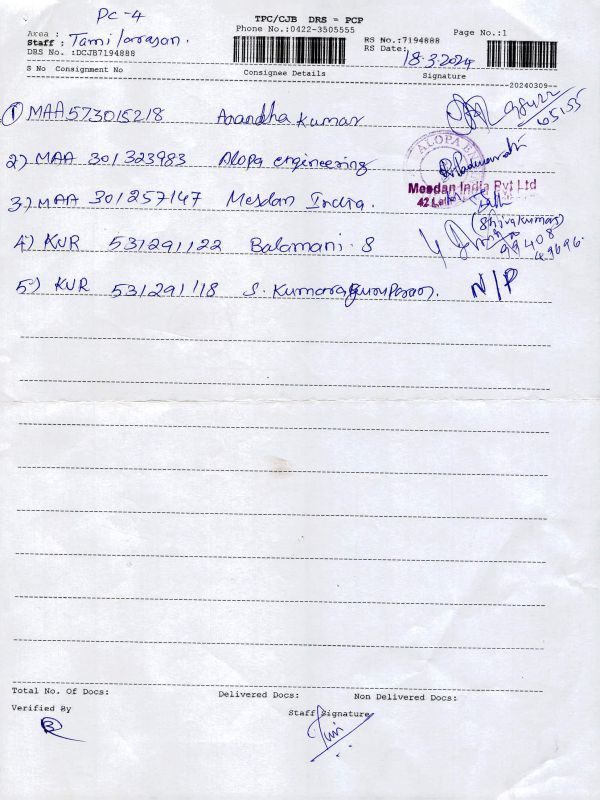 PC-4
TPC/CJB DRS - PCP
Area :
Phone No.:0422-3505555
Page No.:1
Staff : Tamilarasan.
RS No.:7194888
DRS No. :DCJB7194888
RS Date: 18-3-2024
S No Consignment No Consignee Details Signature
20240309--
1) MAA573015218 Anandha Kumar 98422
65155
2) MAA 301323983 Alopa engineering
ALOPA E
3) MAA 301257147 Mesdan India.
Mesdan India Pvt Ltd
(Shivakumar)
4) KUR 531291122 Balamani. S
99408
49696.
5) KUR 531291118 S. Kumaraguruparan. N/P
Total No. Of Docs: Delivered Docs: Non Delivered Docs:
Verified By
Staff Signature